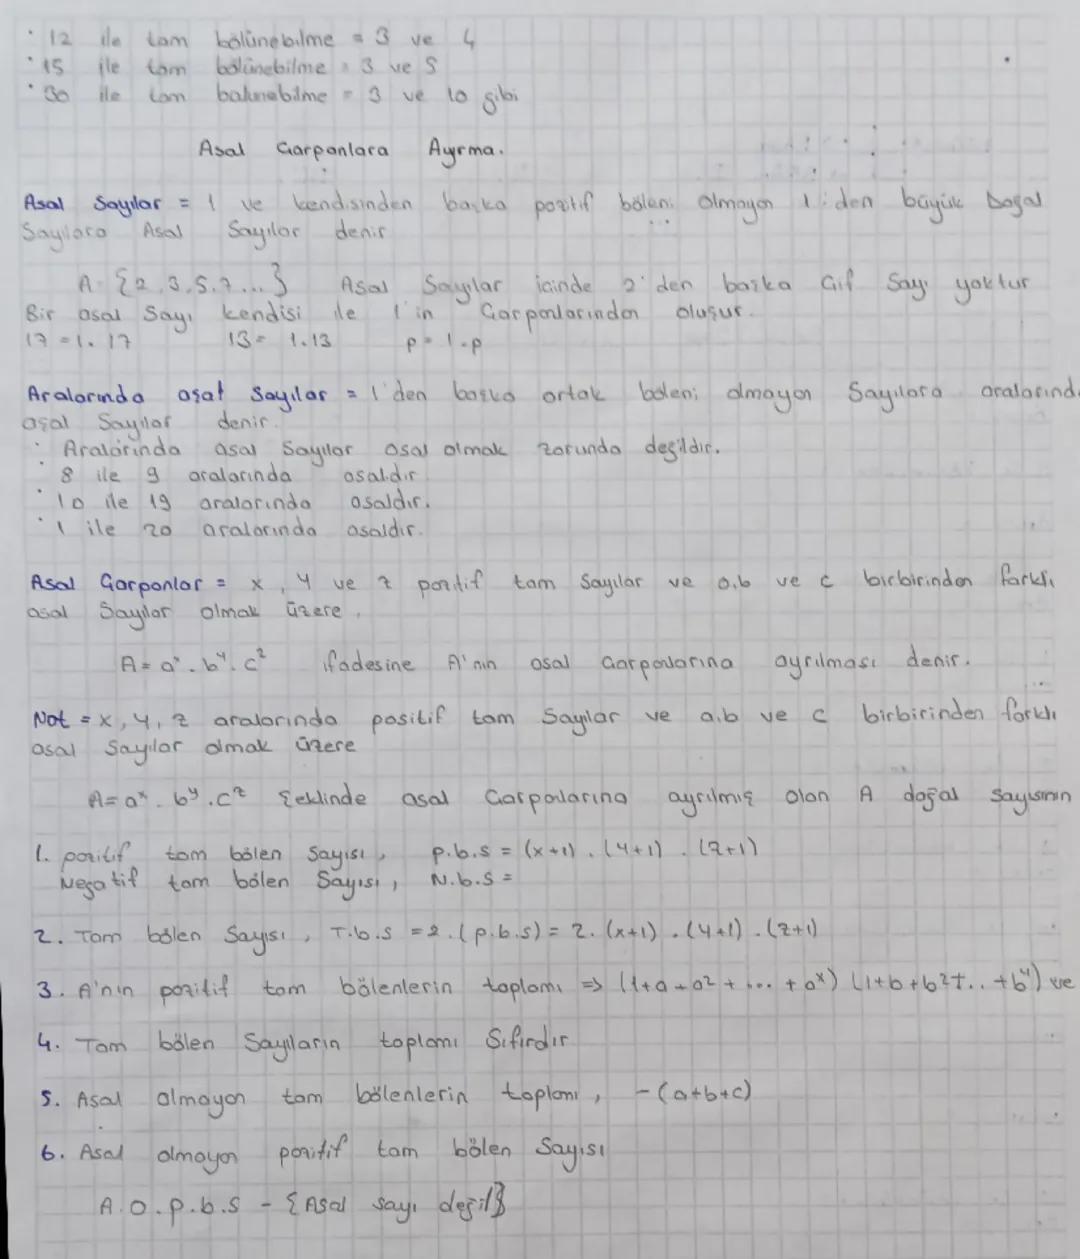 · 12 ile tam bölünebilme = 3 ve 4
· 15 ile tam bölünebilme = 3 ve 5
· 30 ile tam balunebilme = 3 ve 10 gibi
Asal Çarpanlara Ayırma.
Asal Sayılar = 1 ve kendisinden başka pozitif böleni olmayan 1'den büyük Doğal
Sayılara Asal Sayılar denir
A = {2,3,5,7...} Asal Sayılar içinde 2'den başka Çif Sayı yoktur
Bir asal Sayı kendisi ile 1'in Çarpanlarından oluşur.
17 = 1.17 13 = 1.13 p = 1.p
Aralarında asal Sayılar = 1'den başka ortak böleni olmayan Sayılara aralarında
asal Sayılar denir.
· Aralarında asal Sayılar asal olmak zorunda değildir.
· 8 ile 9 aralarında asaldır
· 10 ile 19 aralarında asaldır.
· 1 ile 20 aralarında asaldır.
Asal Çarpanlar = x, y ve z pozitif tam Sayılar ve a,b ve c birbirinden farklı
asal Sayılar olmak üzere,
A = aˣ . bʸ . c² ifadesine A'nın asal Çarpanlarına ayrılması denir.
Not = x, y, z aralarında positif tam Sayılar ve a,b ve c birbirinden farklı
asal Sayılar olmak üzere
A = aˣ . bʸ . cᶻ Şeklinde asal Çarpanlarına ayrılmış olan A doğal Sayısının
1. pozitif tam bölen Sayısı, p.b.s = (x+1) . (y+1) . (z+1)
Negatif tam bölen Sayısı, N.b.s =
2. Tam bölen Sayısı, T.b.s = 2.(p.b.s) = 2.(x+1) . (y+1) . (z+1)
3. A'nın pozitif tam bölenlerin toplamı => (1+a+a²+...+aˣ) (1+b+b²+..+bʸ) ve
4. Tam bölen Sayıların toplamı Sıfırdır
5. Asal olmayan tam bölenlerin toplamı, -(a+b+c)
6. Asal olmayan pozitif tam bölen Sayısı
A.O.p.b.s - {Asal sayı değil}